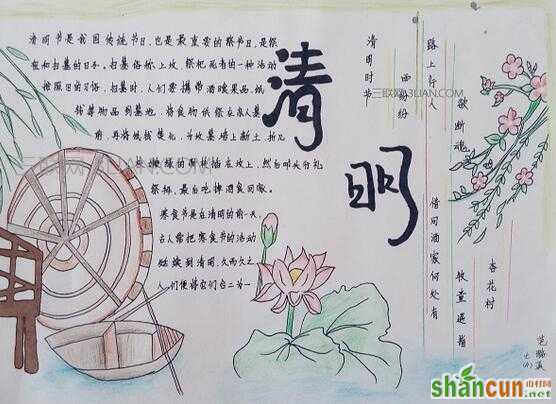 清明节是我国传统节日，也是最重要的祭节日，是祭
祖和扫墓的日子。扫墓俗称上坟，祭祀死者的一种活动
按照旧的习俗，扫墓时，人们要携带酒食果品，纸
钱等物品到墓地，将食物供祭在亲人墓
前，再将纸钱焚化，为坟墓培上新土，折几
枝嫩绿的新枝插在坟上，然后叩头行礼
祭拜，最后吃掉酒食回家。
寒食节是在清明的前一天，
古人常把寒食节的活动
延续到清明，久而久之
，人们便将它们合二为一
清明
清明时节
雨纷纷
路上行人
欲断魂
借问酒家何处有
牧童遥指
杏花村
三联网3LIAN.COM
shancun
山村网
.net